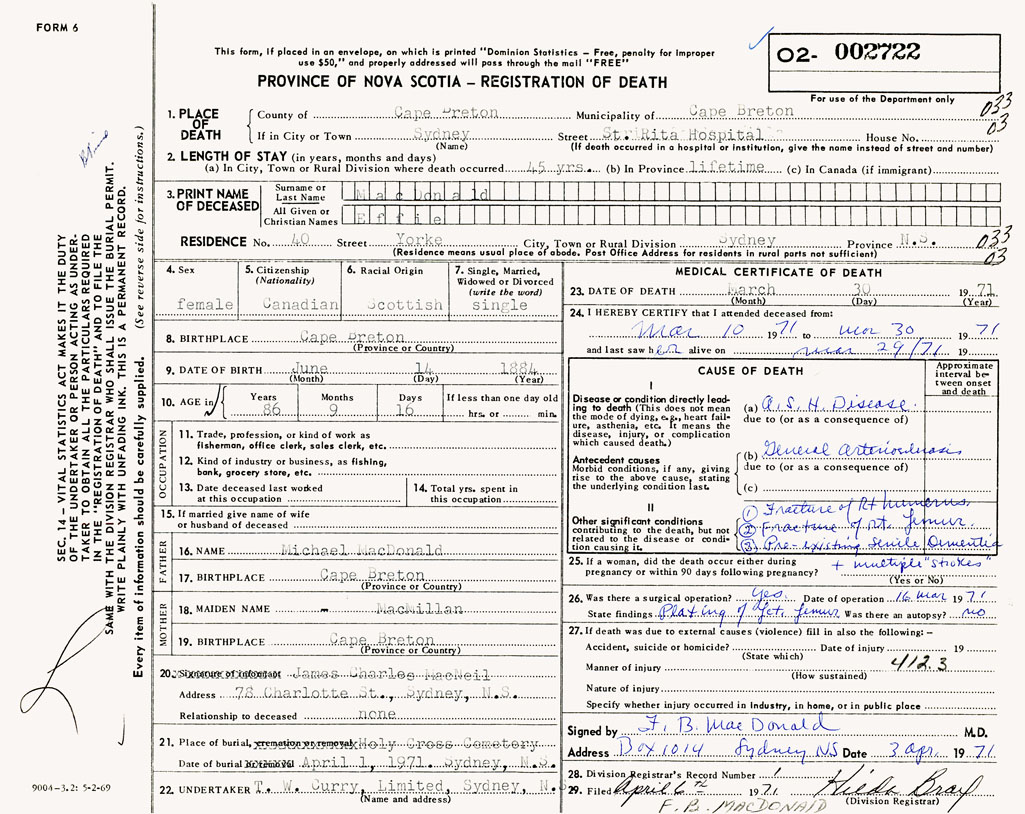 FORM 6
This form, If placed in an envelope, on which is printed "Dominion Statistics – Free, penalty for Improper
use $50," and properly addressed will pass through the mail "FREE"
PROVINCE OF NOVA SCOTIA – REGISTRATION OF DEATH
O2- 002722
For use of the Department only
033
03
1. PLACE OF DEATH
County of Cape Breton Municipality of Cape Breton
If in City or Town Sydney Street St. Rita Hospital House No.
(Name) (If death occurred in a hospital or institution, give the name instead of street and number)
2. LENGTH OF STAY (in years, months and days)
(a) In City, Town or Rural Division where death occurred 45 yrs. (b) In Province lifetime (c) In Canada (if immigrant)
3. PRINT NAME OF DECEASED
Surname or Last Name MacDonald
All Given or Christian Names Effie
RESIDENCE No. 40 Street Yorke City, Town or Rural Division Sydney Province N.S.
(Residence means usual place of abode. Post Office Address for residents in rural parts not sufficient)
033
03
4. Sex
female
5. Citizenship
(Nationality)
Canadian
6. Racial Origin
Scottish
7. Single, Married,
Widowed or Divorced
(write the word)
single
8. BIRTHPLACE Cape Breton
(Province or Country)
9. DATE OF BIRTH June 14 1884
(Month) (Day) (Year)
10. AGE in
Years Months Days If less than one day old
86 9 16 hrs. or min.
OCCUPATION
11. Trade, profession, or kind of work as
fisherman, office clerk, sales clerk, etc.
12. Kind of industry or business, as fishing,
bank, grocery store, etc.
13. Date deceased last worked
at this occupation
14. Total yrs. spent in
this occupation
15. If married give name of wife
or husband of deceased
FATHER
16. NAME Michael MacDonald
17. BIRTHPLACE Cape Breton
MOTHER
18. MAIDEN NAME - MacMillan
19. BIRTHPLACE Cape Breton
(Province or Country)
20. Signature of informant James Charles MacNeil
Address 78 Charlotte St., Sydney, N.S.
Relationship to deceased none
21. Place of burial, cremation or removal Holy Cross Cemetery
Date of burial or removal April 1, 1971. Sydney, N.S.
22. UNDERTAKER T. W. Curry, Limited, Sydney, N.S.
(Name and address)
MEDICAL CERTIFICATE OF DEATH
23. DATE OF DEATH March 30 1971
(Month) (Day) (Year)
24. I HEREBY CERTIFY that I attended deceased from:
Mar 10 1971 to Mar 30 1971
and last saw her alive on Mar 29/71 19
CAUSE OF DEATH
Approximate
interval be-
tween onset
and death
I
Disease or condition directly lead-
ing to death (This does not mean
the mode of dying, e.g., heart fail-
ure, asthenia, etc. It means the
disease, injury, or complication
which caused death.)
(a) A.S.H. Disease.
due to (or as a consequence of)
Antecedent causes
Morbid conditions, if any, giving
rise to the above cause, stating
the underlying condition last.
(b) General Arteriosclerosis
due to (or as a consequence of)
(c)
II
Other significant conditions
contributing to the death, but not
related to the disease or condi-
tion causing it.
① Fracture of Rt humerus
② Fracture of rt. femur.
③ Pre-existing Senile Dementia
+ multiple "strokes"
25. If a woman, did the death occur either during
pregnancy or within 90 days following pregnancy?
(Yes or No)
26. Was there a surgical operation? Yes. Date of operation 16 Mar 1971
State findings Plating of fct. femur Was there an autopsy? no
27. If death was due to external causes (violence) fill in also the following: –
Accident, suicide or homicide? Date of injury 19
(State which)
Manner of injury 412.3
(How sustained)
Nature of injury
Specify whether injury occurred in Industry, in home, or in public place
Signed by F. B. MacDonald M.D.
Address Box 1014 Sydney NS Date 3 apr. 1971
28. Division Registrar's Record Number 1
29. Filed April 6th 1971 Hilda Bray
(Division Registrar)
F. B. MACDONALD
SEC. 14 – VITAL STATISTICS ACT MAKES IT THE DUTY
OF THE UNDERTAKER OR PERSON ACTING AS UNDER-
TAKER TO OBTAIN ALL THE PARTICULARS REQUIRED
IN THE "REGISTRATION OF DEATH" AND TO FILE THE
SAME WITH THE DIVISION REGISTRAR WHO SHALL ISSUE THE BURIAL PERMIT.
WRITE PLAINLY WITH UNFADING INK. THIS IS A PERMANENT RECORD.
Every item of information should be carefully supplied. (See reverse side for instructions.)
9004-3.2: 5-2-69